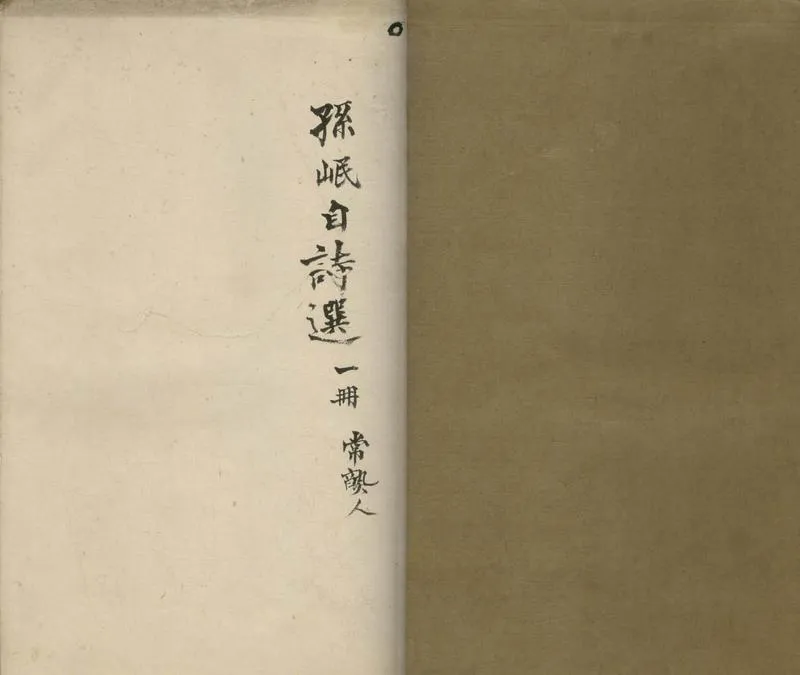 孫岷自詩選 一冊 常熟人